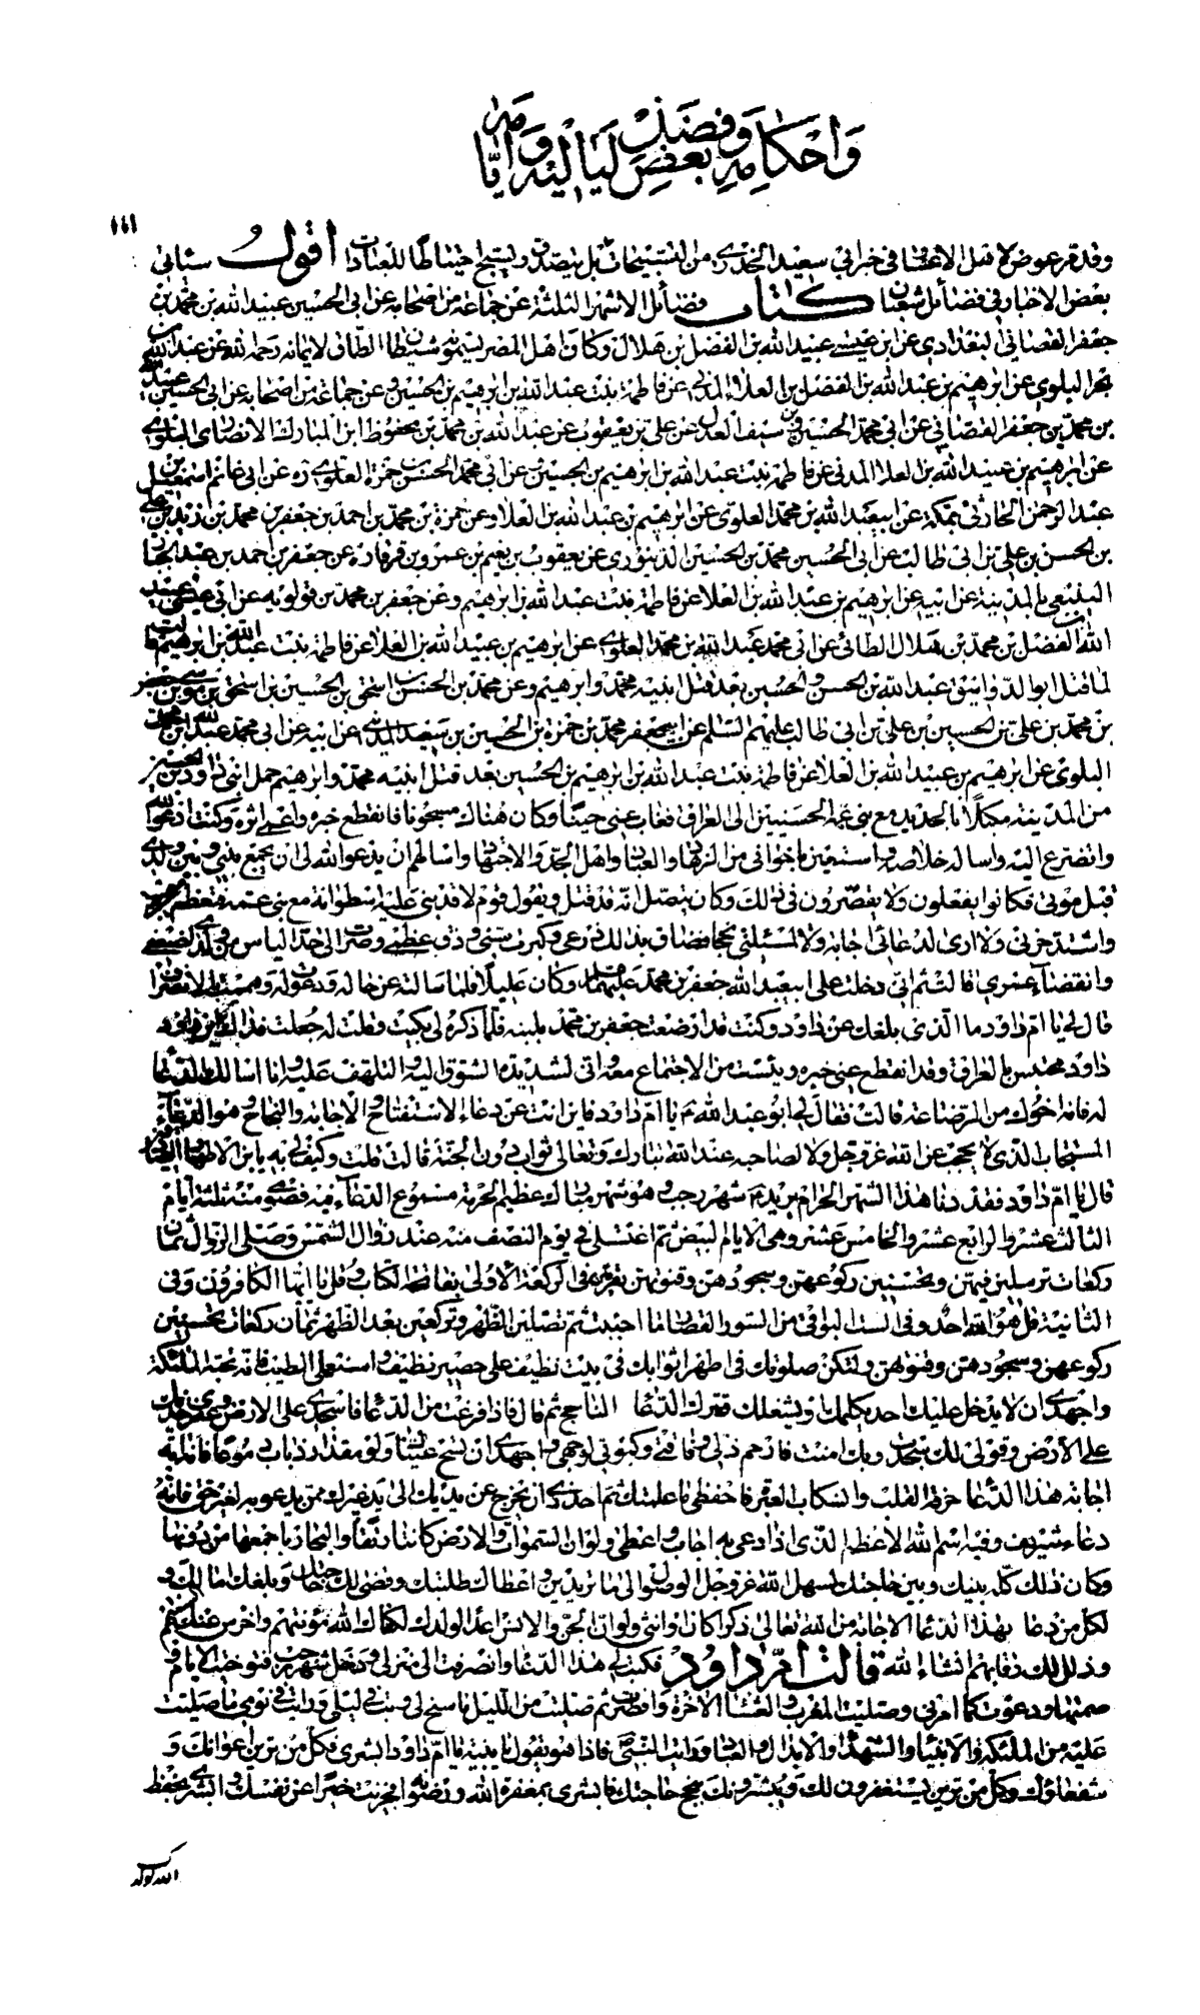 وَاَحْكامِهِ وَفَضْلِ
بَعْضِ لَيالِيْهِ وَاَيّامِهِ
١١١
وقد مر عوض لا قبل الاعشا في خبر ابي سعيد الخدري من التسبيحات بل يتصدق ويسبح احتياطا للعبادات اقول سيأتي
بعض الاخبار في فضائل شعبان كتاب فضائل الاشهر الثلثة عن جماعة من اصحابه عن ابي الحسين عبيد الله بن محمد بن
جعفر القصباني البغدادي عن ابن عيسى عبيد الله بن الفضل بن هلال وكان اهل المصر يسمونه شيطان الطاق لايمانه رحمه الله عن عبد الله بن
البلوي عن ابرهيم بن عبد الله بن الفضل بن العلاء المدني عن فاطمة بنت عبد الله بن ابرهيم بن الحسين وعن جماعة من اصحابه عن ابي الحسين عبيد الله
بن محمد بن جعفر القصباني عن ابي محمد الحسين بن سيف العدل عن علي بن يعقوب عن عبد الله بن محمد بن محفوظ ابن المبارك الانصاري البلوي
عن ابرهيم بن عبيد الله بن العلا المدني عن فاطمة بنت عبد الله بن ابرهيم بن الحسين وعن ابي محمد الحسن بن حمزة العلوي ره عن ابي غانم اسمعيل بن
عبد الرحمن الحارثي بمكة عن ابي عبد الله بن محمد العلوي عن ابرهيم بن عبد الله بن العلا وعن حمزة بن محمد بن احمد بن جعفر بن محمد بن زيد بن علي
بن الحسن بن علي بن ابي طالب عن ابي الحسين محمد بن الحسين الدينوري عن يعقوب بن نعيم بن عمرو بن قرقارة عن جعفر بن احمد بن عبد الجبار
الينبعي بالمدينة عن ابيه عن ابرهيم بن عبد الله بن العلا عن فاطمة بنت عبد الله بن ابرهيم وعن جعفر بن محمد بن قولويه عن ابي عيسى عبيد
الله بن الفضل بن محمد بن هلال الطائي عن ابي محمد عبد الله بن محمد البلوي عن ابرهيم بن عبيد الله بن العلا عن فاطمة بنت عبد الله بن ابرهيم قالت
لما قتل ابو الدوانيق عبد الله بن الحسن بن الحسين بعد قتل ابنيه محمد وابرهيم وعن محمد بن الحسن بن اسحق بن الحسين بن اسحق بن موسى بن جعفر
بن محمد بن علي بن الحسين بن علي بن ابي طالب عليهم السلم عن ابي جعفر محمد بن حمزة بن الحسين بن سعيد المدني عن ابيه عن ابي محمد عبد الله بن محمد
البلوي عن ابرهيم بن عبيد الله بن العلا عن فاطمة بنت عبد الله بن ابرهيم بن الحسين بعد قتل ابنيه محمد وابرهيم حمل ابني داود بن الحسين
من المدينة مكبلا بالحديد مع بني عمه الحسنيين الى العراق فغاب عني حينا وكان هناك مسجونا فانقطع خبره واعمى اثره وكنت ادعو الله
واتضرع اليه واسأله خلاصه واستعين باخواني من الزهاد والعباد واهل الجد والاجتهاد واسالهم ان يدعوا الله لي ان يجمع بيني وبين ولدي
قبل موتي فكانوا يفعلون ولا يقصرون في ذلك وكان يتصل انه قد قتل ويقول قوم لا قد بني عليه اسطوانة مع بني عمه فتعظم مصيبتي
واشتد حزني ولا ارى لدعائي اجابة ولا لمسئلتي نجحا فضاق بذلك ذرعي وكبرت سني ودق عظمي وصرت الى حد الياس من ولدي لضعفي
وانقضاء عمري قالت ثم اني دخلت على ابي عبد الله جعفر بن محمد عليهما السلم وكان عليلا فلما سالته عن حاله ودعوت له وهممت بالانصراف
قال لي يا ام داود ما الذي بلغك عن داود وكنت قد ارضعت جعفر بن محمد بلبنه فلما ذكره لي بكيت وقلت له جعلت فداك اين داود
داود محتبس بالعراق وقد انقطع عني خبره ويئست من الاجتماع معه واني لشديدة الشوق اليه والتلهف عليه وانا اسالك الدعاء
له فانه اخوك من الرضاعة قالت فقال لي ابو عبد الله ع يا ام داود فاين انت عن دعاء الاستفتاح والاجابة والنجاح وهو الدعاء
المستجاب الذي لا يحجب عن الله عز وجل ولا لصاحبه عند الله تبارك وتعالى ثواب دون الجنة قالت قلت وكيف لي به يا بن الاطهار الصادقين
قال يا ام داود فقد دنا هذا الشهر الحرام يريد ع شهر رجب وهو شهر مبارك عظيم الحرمة مسموع الدعاء فيه فصومي منه ثلثة ايام
الثالث عشر والرابع عشر والخامس عشر وهي الايام البيض ثم اغتسلي في يوم النصف منه عند زوال الشمس وصلي الزوال ثمان
ركعات ترسلين فيهن وتحسنين ركوعهن وسجودهن وقنوتهن تقرئي في الركعة الاولى بفاتحة الكتاب وقل يا ايها الكافرون وفي
الثانية قل هو الله احد وفي الست البواقي من السور القصار ما احببت ثم تصلين الظهر وتركعين بعد الظهر ثمان ركعات تحسنين
ركوعهن وسجودهن وقنوتهن ولتكن صلوتك في اطهر اثوابك في بيت نظيف على حصير نظيف واستعملي الطيب فانه تحبه الملئكة
واجهدي ان لا يدخل عليك احد يكلمك او يشغلك فقرئ الدعاء الناجح ثم قال فاذا فرغت من الدعاء فاسجدي على الارض وعفري خديك
على الارض وقولي لك سجدت وبك امنت فارحم ذلي وفاقتي وكبوتي لوجهي واجهدي ان تسح عيناك ولو مقدار ذباب دموعا فانه اية
اجابة هذا الدعاء حرقة القلب وانسكاب العبرة فاحفظي ما علمتك ثم احذري ان يخرج عن يديك الى يد غيرك ممن يدعو به لغير حق فانه
دعاء شريف وفيه اسم الله الاعظم الذي اذا دعي به اجاب واعطى ولو ان السموات والارض كانتا رتقا والبحار باجمعها من دونها
وكان ذلك كله بينك وبين حاجتك لسهل الله عز وجل الوصول الى ما تريدين واعطاك طلبتك وقضى لك حاجتك وبلغك امالك و
لكل من دعا بهذا الدعاء الاجابة من الله تعالى ذكرا كان او انثى ولو ان الجن والانس اعداء لولدك لكفاك الله مؤنتهم واخرس عنك السنتهم
وذلل لك رقابهم انشاء الله قالت ام داود فكتب لي هذا الدعاء وانصرفت الى منزلي ودخل شهر رجب فتوخيت الايام و
صمتها ودعوت كما امرني وصليت المغرب والعشاء الاخرة وافطرت ثم صليت من الليل ما سنح لي وبت في ليلي ورايت في نومي ما صليت
عليه من الملئكة والانبياء والشهداء والابدال والعباد ورايت النبي ص فاذا هو يقول يا بنية يا ام داود ابشري فكل من ترين اعوانك و
شفعاؤك وكل من ترين يستغفرون لك ويبشرونك بنجح حاجتك فابشري بمغفرة الله ورضوانه فجزيت خيرا عن نفسك وابشري بحفظ
الله لولدك